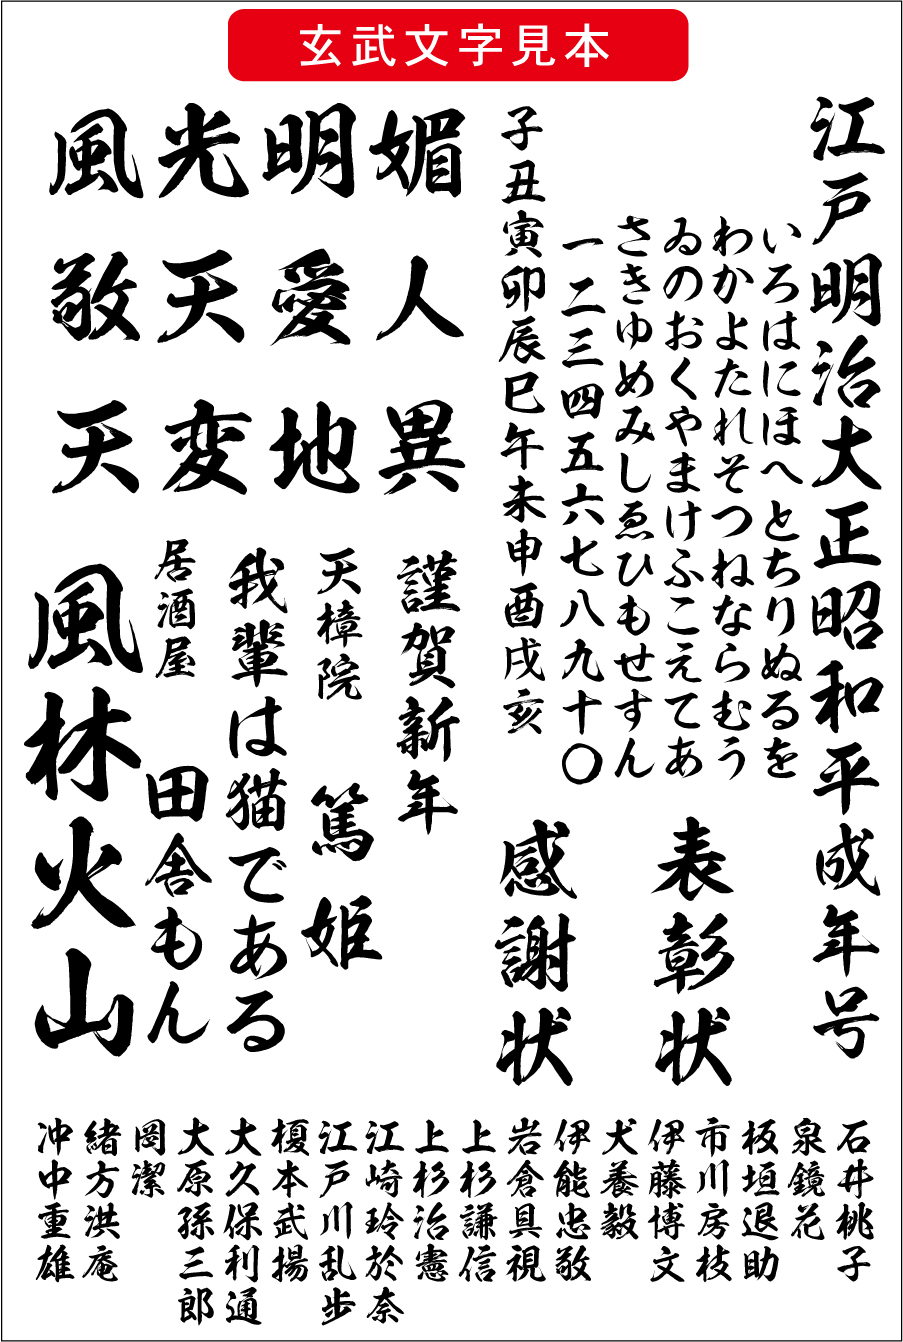 玄武文字見本
江戸明治大正昭和平成年号
いろはにほへとちりぬるを
わかよたれそつねならむう
ゐのおくやまけふこえてあ
さきゆめみしゑひもせすん
一二三四五六七八九十〇
子丑寅卯辰巳午未申酉戌亥
表彰状
感謝状
風光明媚
敬天愛人
天変地異
謹賀新年
天樟院 篤姫
我輩は猫である
居酒屋 田舎もん
風林火山
石井桃子
泉鏡花
板垣退助
市川房枝
伊藤博文
犬養毅
伊能忠敬
岩倉具視
上杉謙信
上杉治憲
江崎玲於奈
江戸川乱歩
榎本武揚
大久保利通
大原孫三郎
岡潔
緒方洪庵
沖中重雄